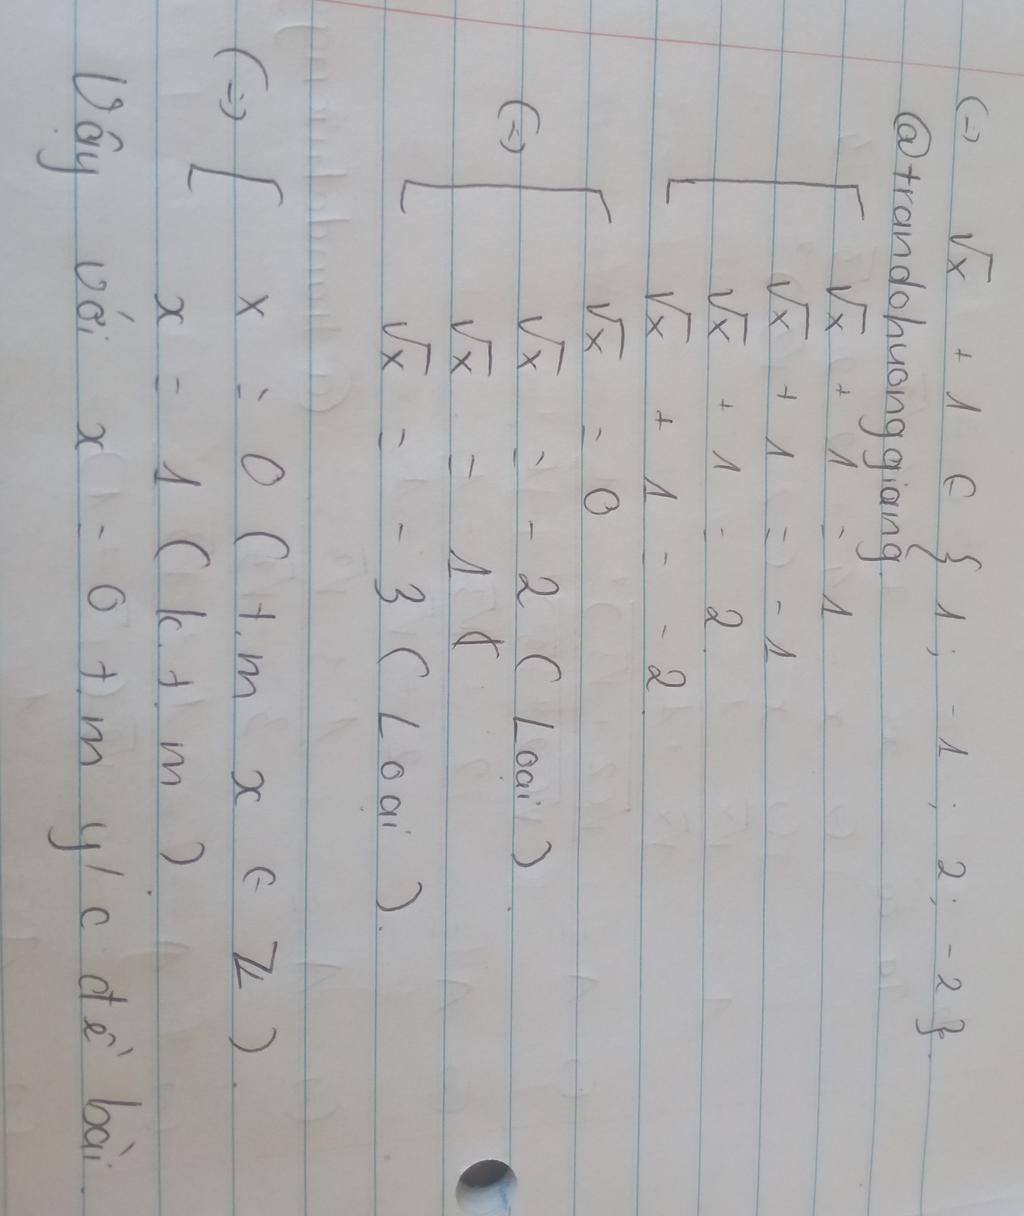 (=) √x + 1 ∈ { 1 ; -1 ; 2 ; -2 }.
@trandohuonggiang
√x + 1 = 1
√x + 1 = -1
√x + 1 = 2
√x + 1 = -2
(=) √x = 0
√x = -2 (Loại)
√x = 1
√x = -3 (Loại).
(=) x = 0 (t.m x ∈ Z).
x = 1 (k.t m)
Vậy với x = 0 t m y/c đề bài.